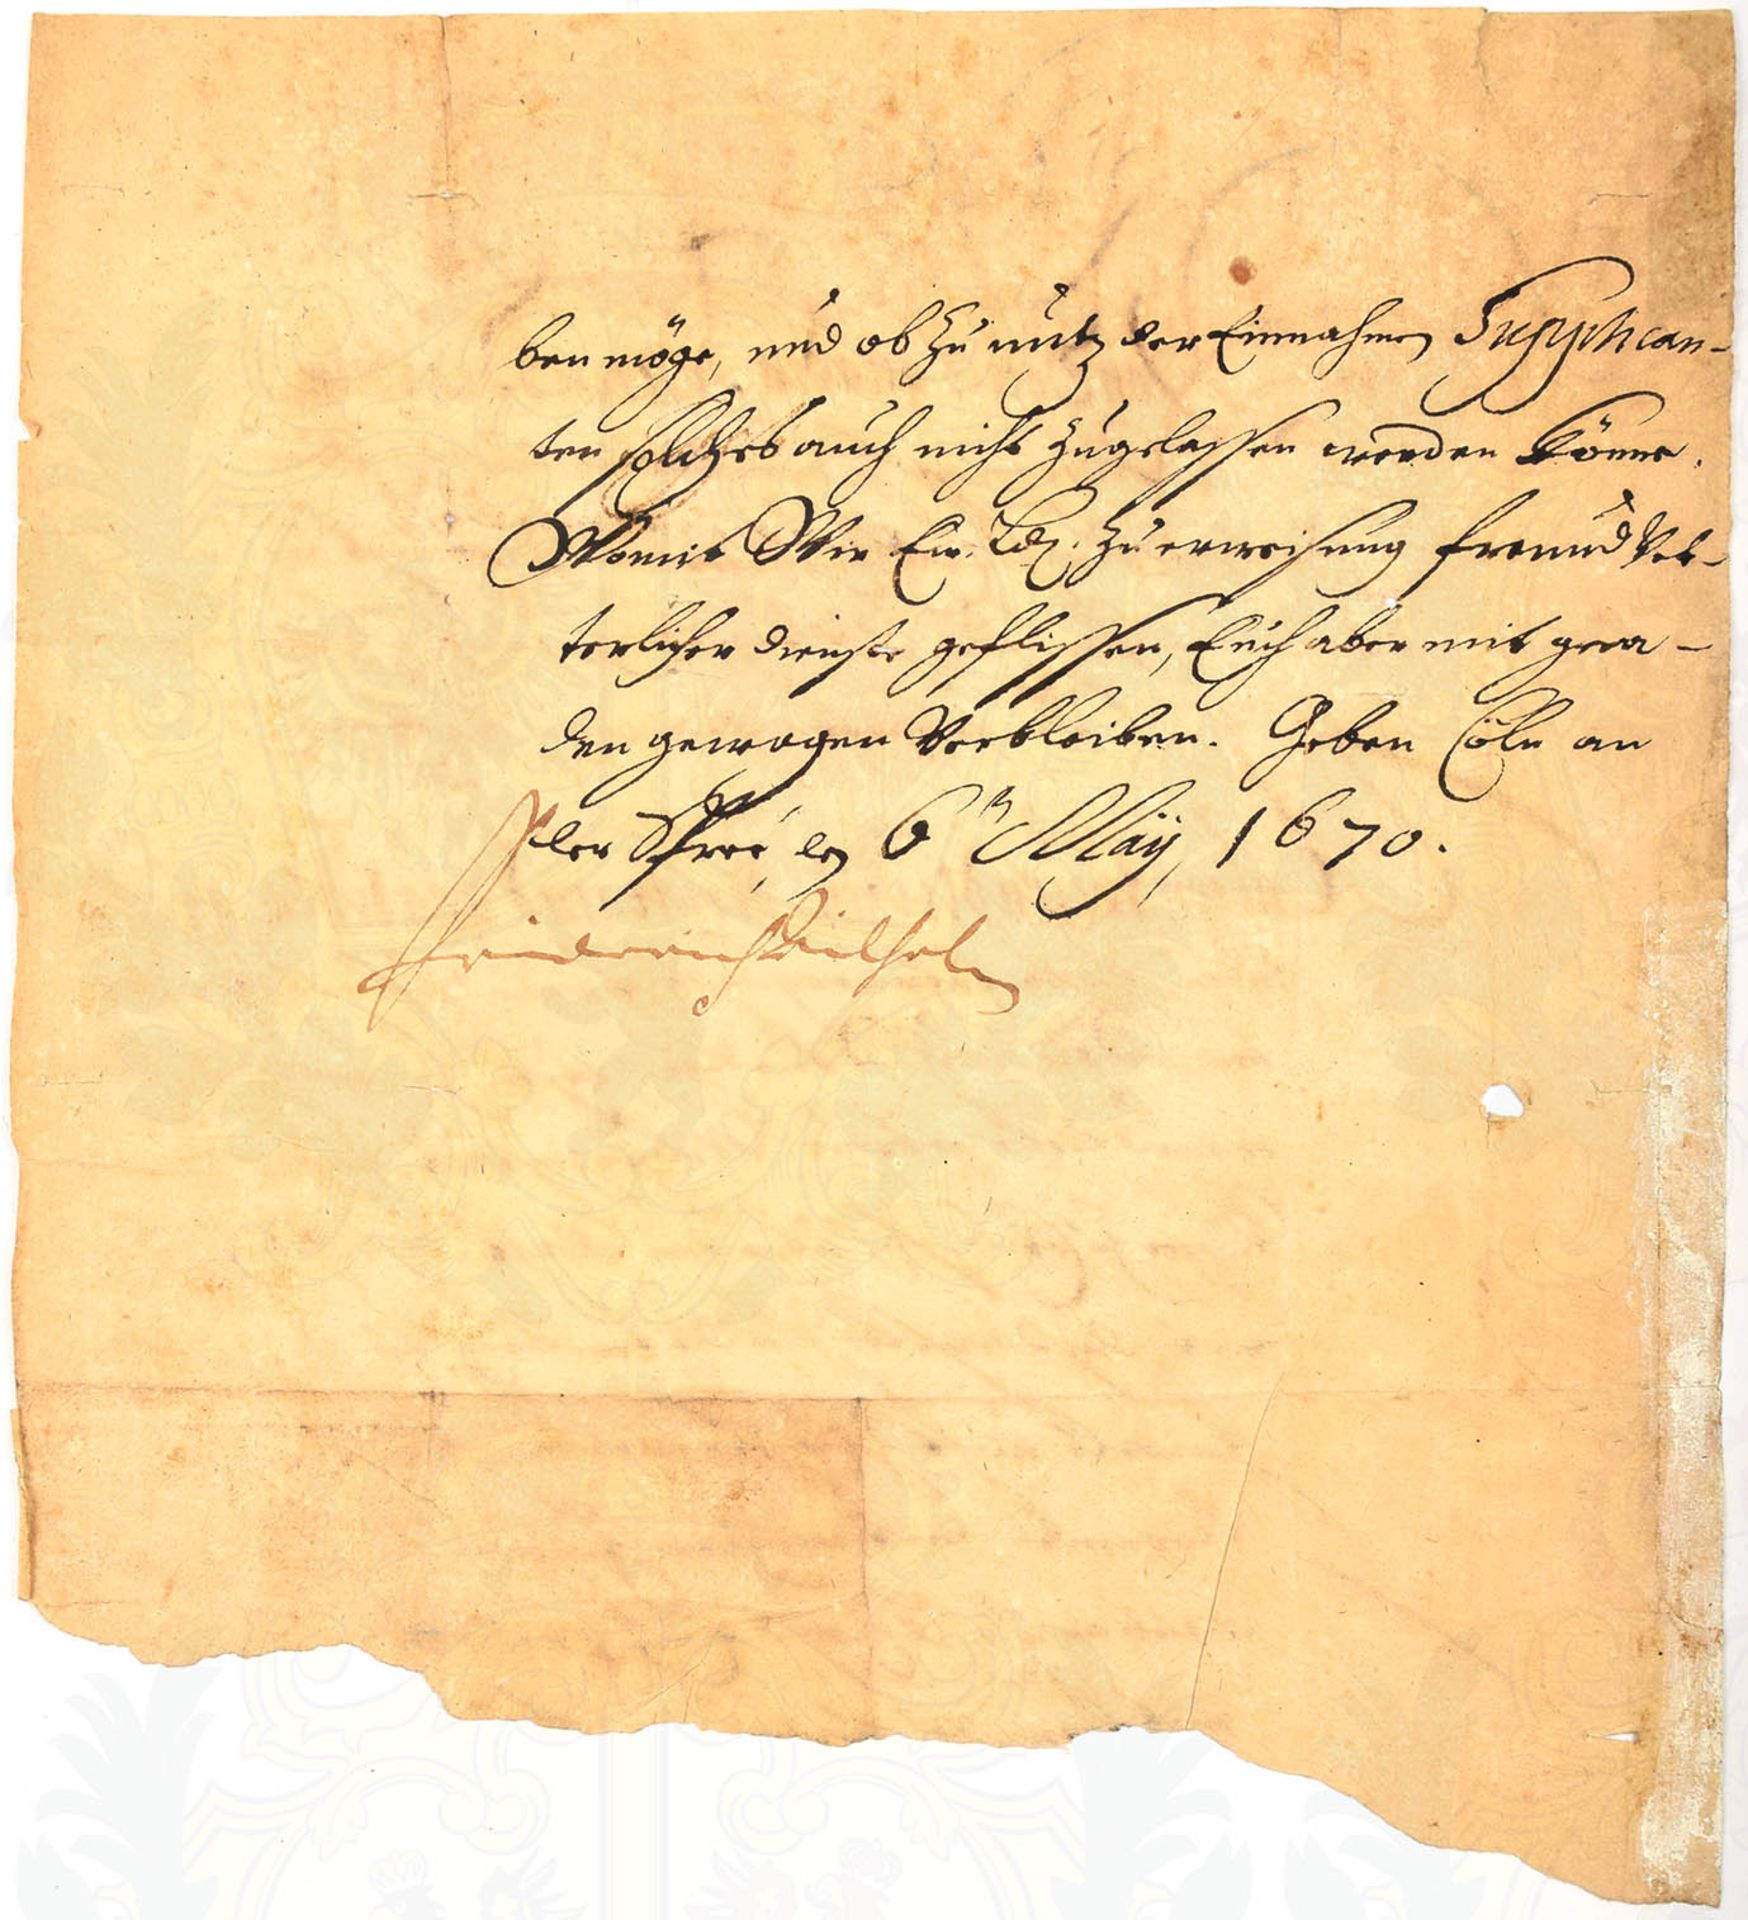 ben möge, und ob zu nutz der Einnahmen Supplican-
ten solches auch nicht zugelassen werden könne.
Womit Wir Ew. Ld. zu erweisung freund Vet-
terlicher dienste geflissen, Euch aber mit gna-
den gewogen Verbleiben. Geben Cöln an
der Spree, den 6n Maÿ, 1670.
Friderich Wilhelm